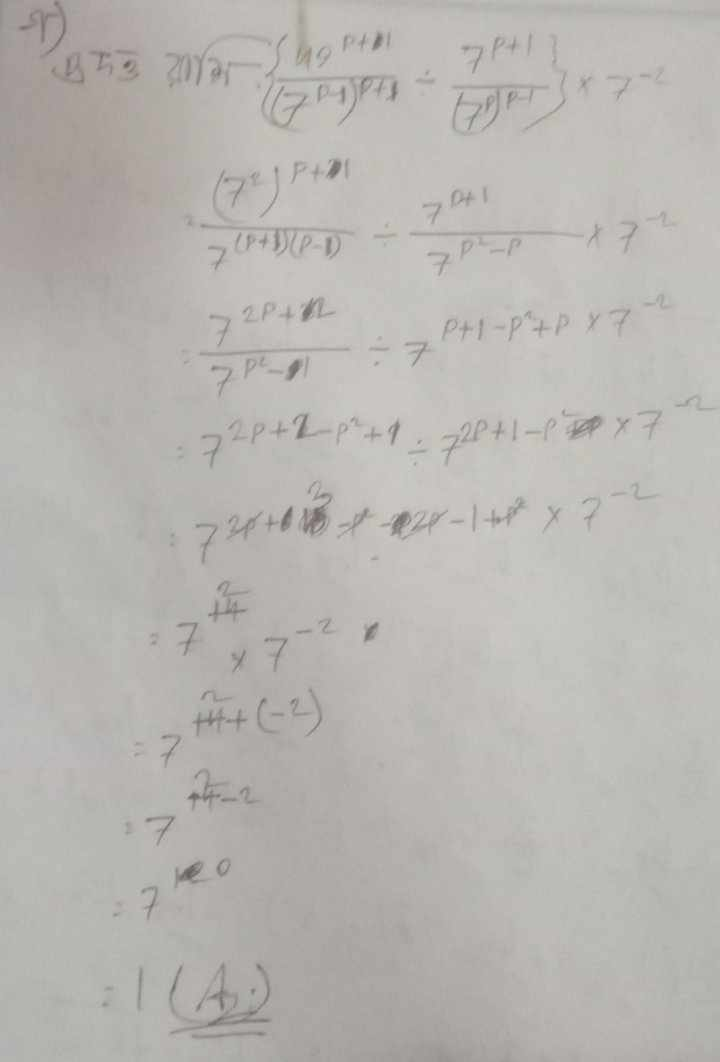 ক) প্রদত্ত রাশি = {49^(p+1)/(7^(p-1))^(p+1) ÷ 7^(p+1)/(7^p)^(p-1)} × 7^(-2)
= (7^2)^(p+1)/7^((p+1)(p-1)) ÷ 7^(p+1)/7^(p^2-p) × 7^(-2)
= 7^(2p+2)/7^(p^2-1) ÷ 7^(p+1-p^2+p) × 7^(-2)
= 7^(2p+2-p^2+1) ÷ 7^(2p+1-p^2) × 7^(-2)
= 7^(2p+3-p^2-2p-1+p^2) × 7^(-2)
= 7^2 × 7^(-2)
= 7^(2+(-2))
= 7^(2-2)
= 7^0
= 1 (Ans.)